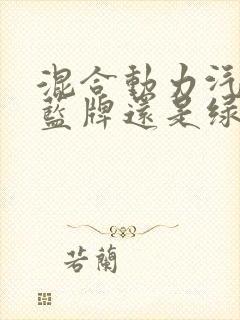 混合動力汽
藍牌還是綠
若蘭